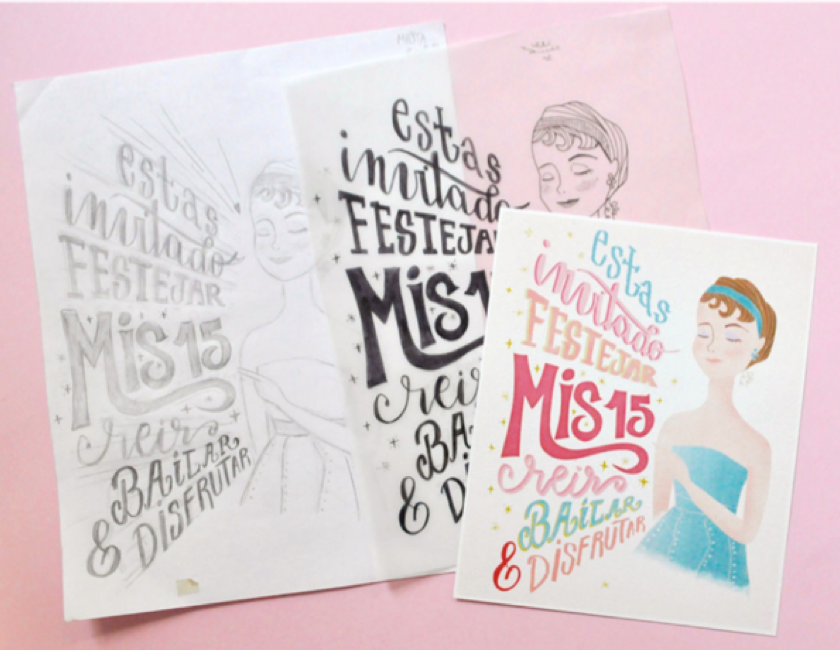 estas
invitado
FESTEJAR
Mis 15
reir
BAILAR
& DISFRUTAR
estas
invitado
FESTEJA
Mis 1
rei
BA
& D
estas
invitado
FESTEJAR
Mis 15
reir
BAILAR
& DISFRUTAR